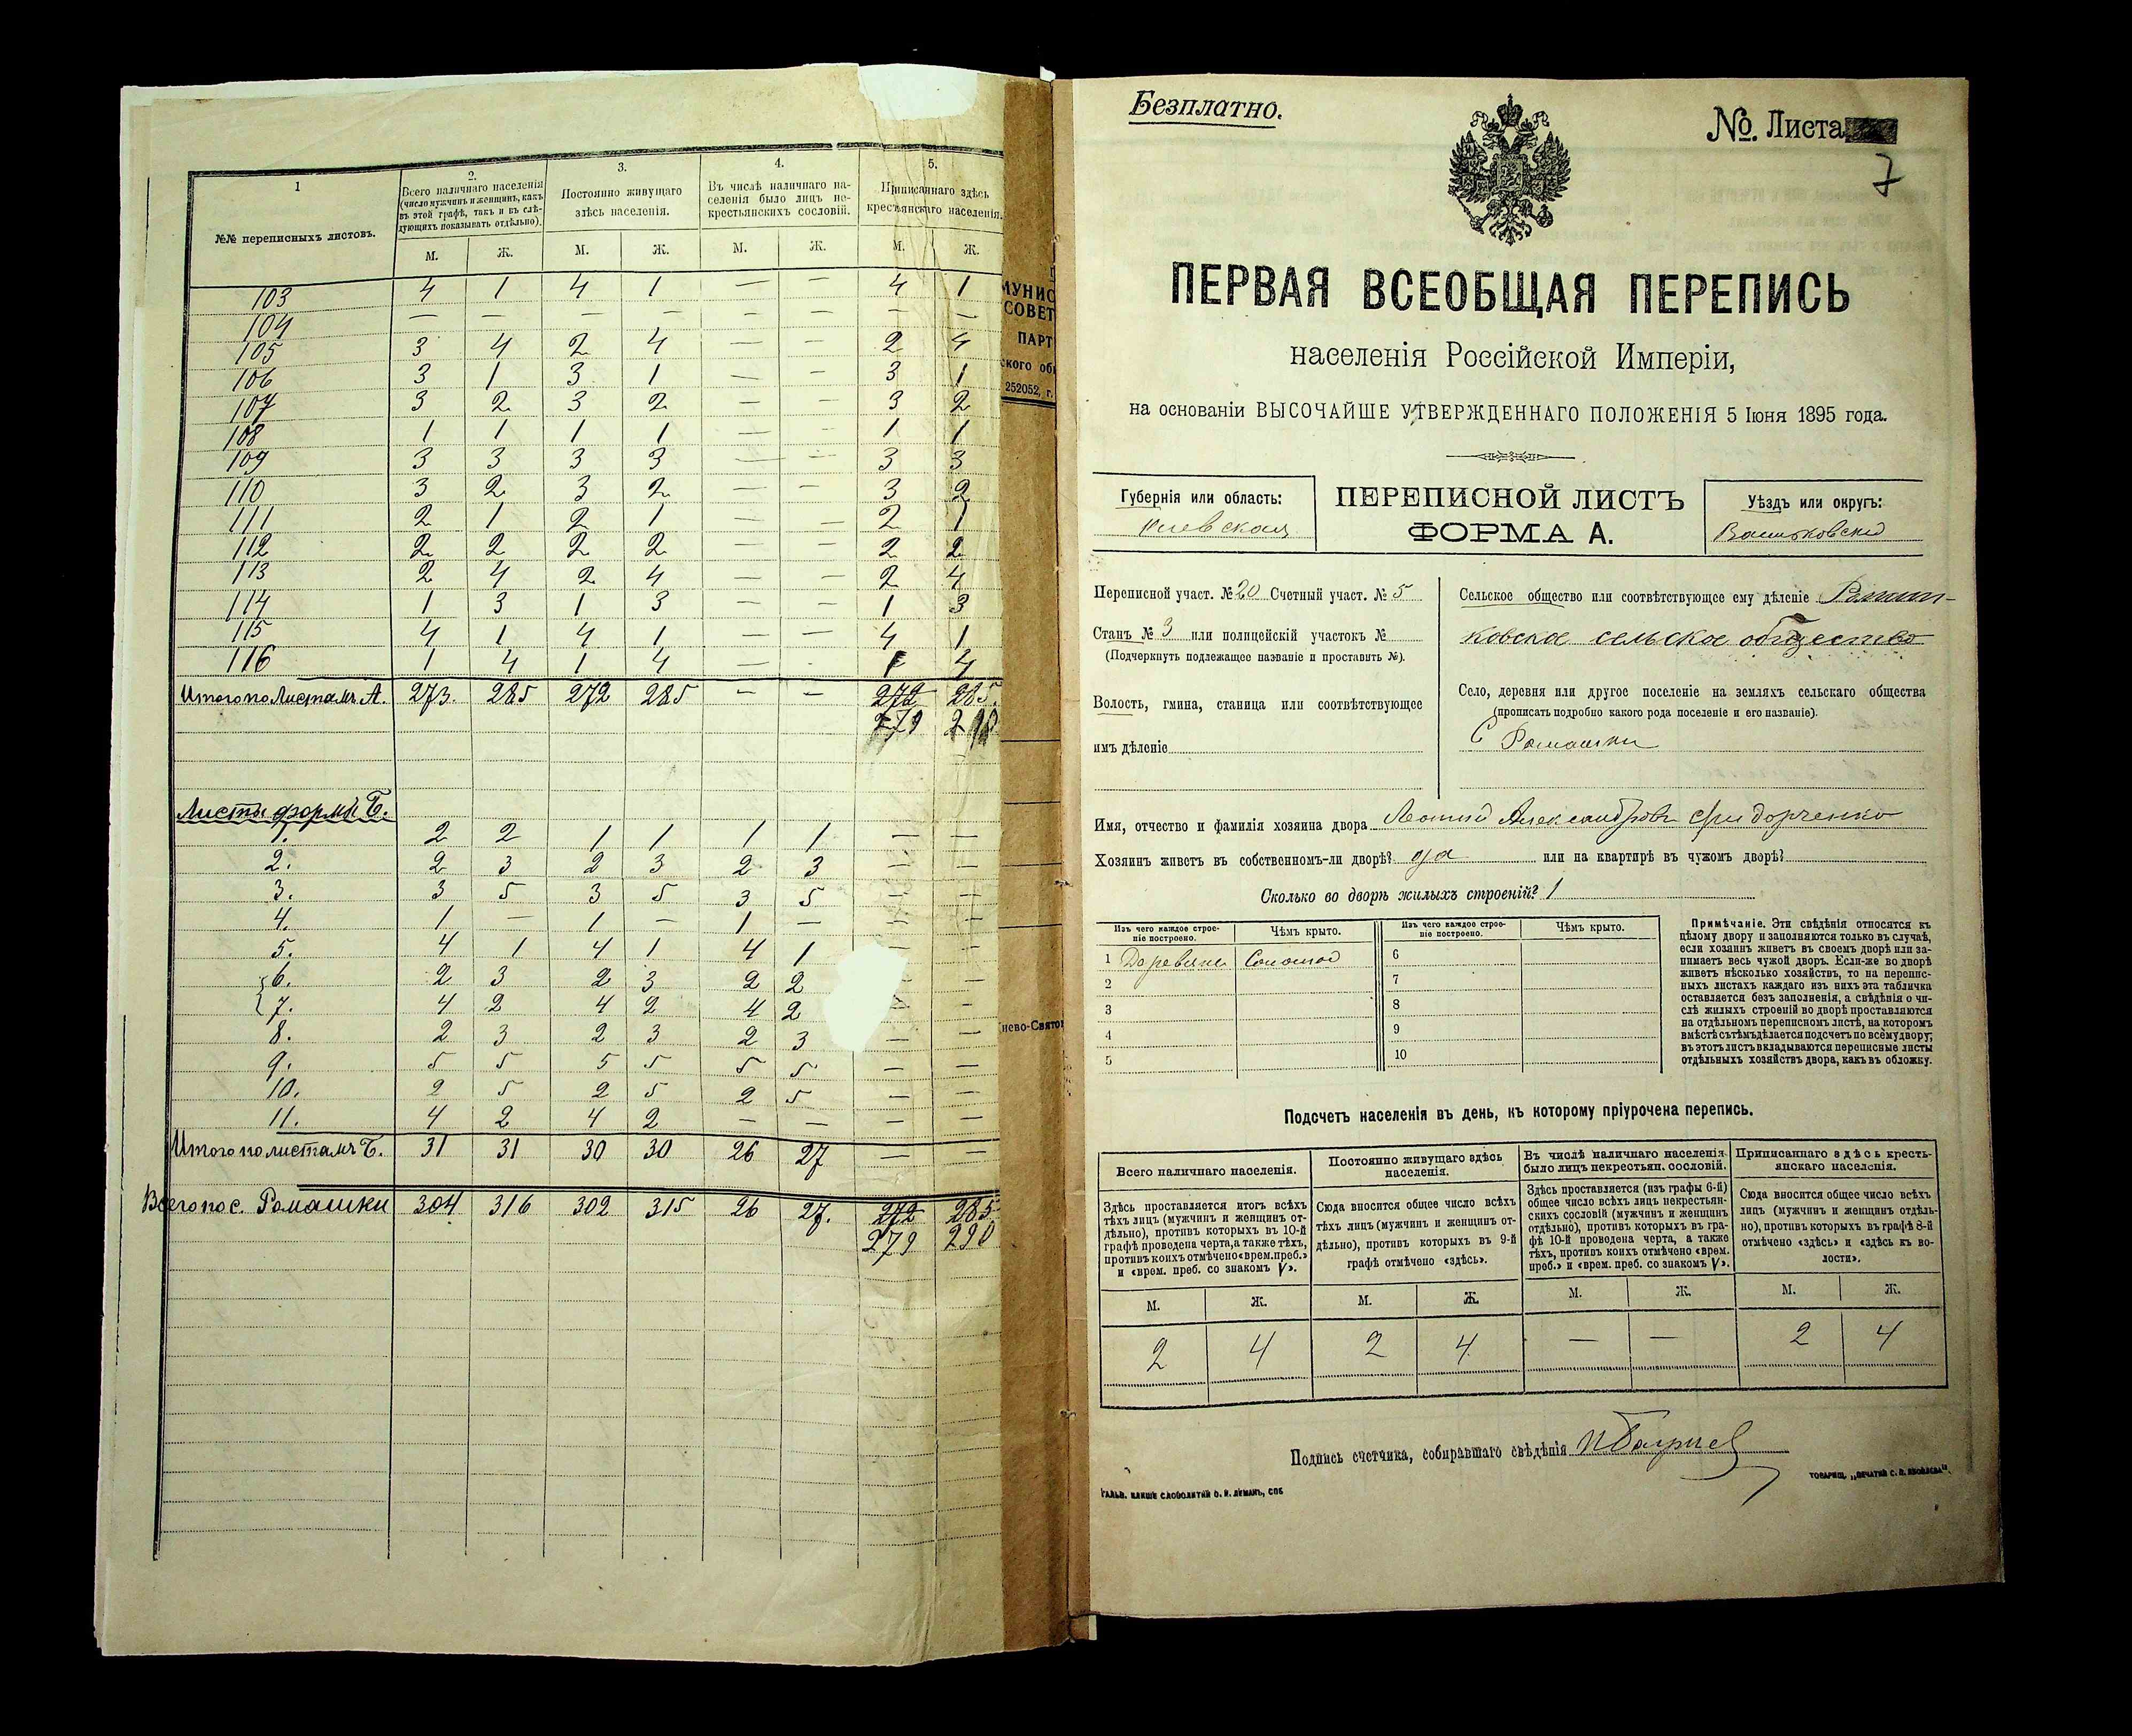 1
2.
Всего наличнаго населенія
(число мужчинъ и женщинъ, какъ
въ этой графѣ, такъ и въ слѣ-
дующихъ показывать отдѣльно).
3.
Постоянно живущаго
здѣсь населенія.
4.
Въ числѣ наличнаго на-
селенія было лицъ не-
крестьянскихъ сословій.
5.
Приписаннаго здѣсь
крестьянскаго населенія.
№№ переписныхъ листовъ.
М. Ж. М. Ж. М. Ж. М. Ж.
103 4 1 4 1 — — 4 1
104 — — — — — — — —
105 3 4 2 4 — — 2 4
106 3 1 3 1 — — 3 1
107 3 2 3 2 — — 3 2
108 1 1 1 1 — — 1 1
109 3 3 3 3 — — 3 3
110 3 2 3 2 — — 3 2
111 2 1 2 1 — — 2 1
112 2 2 2 2 — — 2 2
113 2 4 2 4 — — 2 4
114 1 3 1 3 — — 1 3
115 4 1 4 1 — — 4 1
116 1 4 1 4 — — 1 4
Итого по Листамъ А. 273. 285 272 285 — — 272 285.
279
Листы формы Б.
1. 2 2 1 1 1 1 — —
2. 2 3 2 3 2 3 — —
3. 3 5 3 5 3 5 — —
4. 1 — 1 — 1 — — —
5. 4 1 4 1 4 1 —
6. 2 3 2 3 2 2 —
7. 4 2 4 2 4 2 —
8. 2 3 2 3 2 3 — —
9. 5 5 5 5 5 5 — —
10. 2 5 2 5 2 5 — —
11. 4 2 4 2 — — — —
Итого по листамъ Б. 31 31 30 30 26 27 — —
Всего по с. Ромашки 304 316 302 315 26 27. 272 285
279 290
МУНИС
СОВЕТ
ПАРТ
ского об
252052, г.
нево-Свято
Безплатно.
№. Листа
7
ПЕРВАЯ ВСЕОБЩАЯ ПЕРЕПИСЬ
населенія Россійской Имперіи,
на основаніи ВЫСОЧАЙШЕ УТВЕРЖДЕННАГО ПОЛОЖЕНІЯ 5 Іюня 1895 года.
Губернія или область:
Киевская
ПЕРЕПИСНОЙ ЛИСТЪ
ФОРМА А.
Уѣздъ или округъ:
Васильковскій
Переписной участ. № 20 Счетный участ. № 5
Станъ № 3 или полицейскій участокъ №
(Подчеркнуть подлежащее названіе и проставить №).
Волость, гмина, станица или соотвѣтствующее
имъ дѣленіе
Сельское общество или соотвѣтствующее ему дѣленіе Ромаш-
ковское сельское общество
Село, деревня или другое поселеніе на земляхъ сельскаго общества
(прописать подробно какого рода поселеніе и его названіе).
С Ромашки
Имя, отчество и фамилія хозяина двора Леонтій Александровъ Сидорченко
Хозяинъ живетъ въ собственномъ-ли дворѣ? да или на квартирѣ въ чужомъ дворѣ?
Сколько во дворѣ жилыхъ строеній? 1
Изъ чего каждое строе-
ніе построено.
Чѣмъ крыто.
Изъ чего каждое строе-
ніе построено.
Чѣмъ крыто.
1 Деревяне Соломой 6
2 7
3 8
4 9
5 10
Примѣчаніе. Эти свѣдѣнія относятся къ
цѣлому двору и заполняются только въ случаѣ,
если хозяинъ живетъ въ своемъ дворѣ или за-
нимаетъ весь чужой дворъ. Если-же во дворѣ
живетъ нѣсколько хозяйствъ, то на перепис-
ныхъ листахъ каждаго изъ нихъ эта табличка
оставляется безъ заполненія, а свѣдѣнія о чи-
слѣ жилыхъ строеній во дворѣ проставляются
на отдѣльномъ переписномъ листѣ, на которомъ
вмѣстѣ съ тѣмъ дѣлается подсчетъ по всему двору;
въ этотъ листъ вкладываются переписные листы
отдѣльныхъ хозяйствъ двора, какъ въ обложку.
Подсчетъ населенія въ день, къ которому пріурочена перепись.
Всего наличнаго населенія.
Постоянно живущаго здѣсь
населенія.
Въ числѣ наличнаго населенія
было лицъ некрестьян. сословій.
Приписаннаго здѣсь кресть-
янскаго населенія.
Здѣсь проставляется итогъ всѣхъ
тѣхъ лицъ (мужчинъ и женщинъ от-
дѣльно), противъ которыхъ въ 10-й
графѣ проведена черта, а также тѣхъ,
противъ коихъ отмѣчено «врем. преб.»
и «врем. преб. со знакомъ V».
Сюда вносится общее число всѣхъ
тѣхъ лицъ (мужчинъ и женщинъ от-
дѣльно), противъ которыхъ въ 9-й
графѣ отмѣчено «здѣсь».
Здѣсь проставляется (изъ графы 6-й)
общее число всѣхъ лицъ некрестьян-
скихъ сословій (мужчинъ и женщинъ
отдѣльно), противъ которыхъ въ гра-
фѣ 10-й проведена черта, а также
тѣхъ, противъ коихъ отмѣчено «врем.
преб.» и «врем. преб. со знакомъ V».
Сюда вносится общее число всѣхъ
лицъ (мужчинъ и женщинъ отдѣль-
но), противъ которыхъ въ графѣ 8-й
отмѣчено «здѣсь» и «здѣсь къ во-
лости».
М. Ж. М. Ж. М. Ж. М. Ж.
2 4 2 4 — — 2 4
Подпись счетчика, собиравшаго свѣдѣнія
ГАЛЬВ. КЛИШЕ СЛОВОЛИТНИ О. И. ЛЕМАНЪ, СПБ
ТОВАРИЩ. „ПЕЧАТНЯ С. П. ЯКОВЛЕВА".